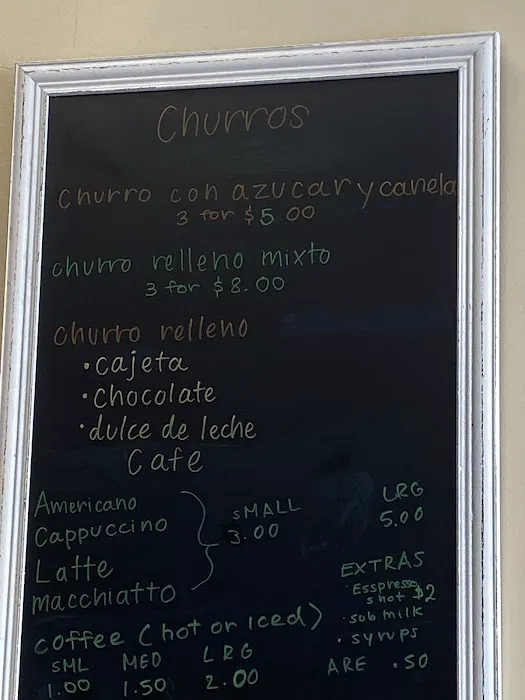 Churros
Churro con azucar y canela
3 for $5.00
churro relleno mixto
3 for $8.00
churro relleno
• cajeta
• chocolate
• dulce de leche
Cafe
Americano
Cappuccino
Latte
macchiatto
SMALL
3.00
LRG
5.00
EXTRAS
• Esspresso shot $2
• sub milk
• syrups
ARE .50
coffee (hot or iced)
SML MED LRG
1.00 1.50 2.00